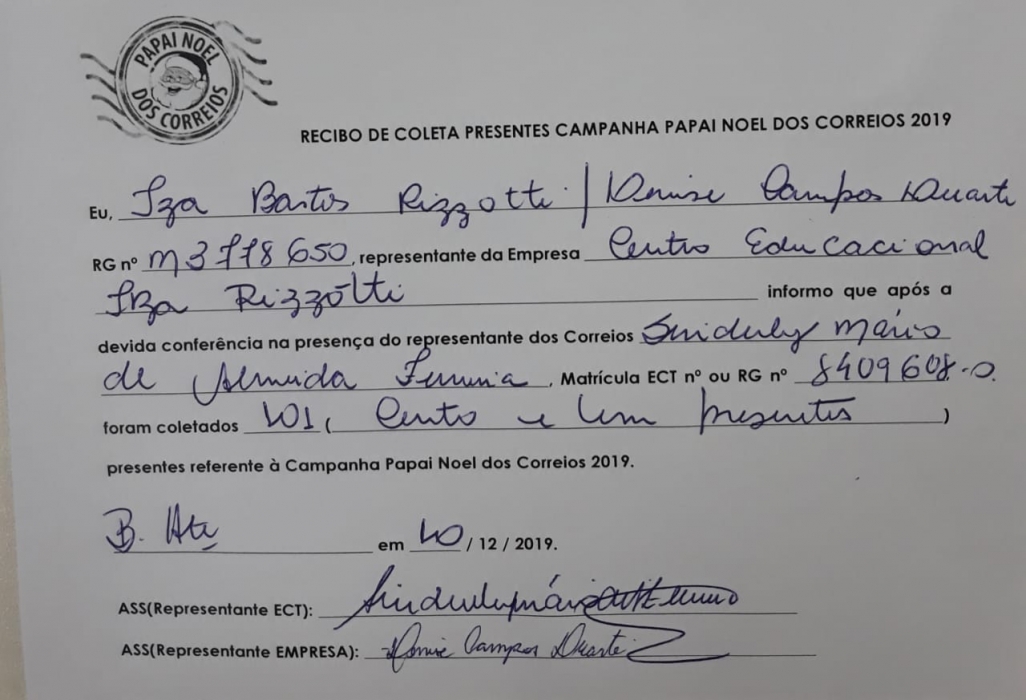 PAPAI NOEL
DOS CORREIOS
RECIBO DE COLETA PRESENTES CAMPANHA PAPAI NOEL DOS CORREIOS 2019
Eu, Iza Bastos Rizzotti / Denise Campos Duarte
RG nº M3778650, representante da Empresa Centro Educacional
Iza Rizzotti informo que após a
devida conferência na presença do representante dos Correios Sinduly Mário
de Almeida Ferreira, Matrícula ECT nº ou RG nº 8409608-0
foram coletados 101 ( Cento e Um presentes )
presentes referente à Campanha Papai Noel dos Correios 2019.
B. Hte em 10 / 12 / 2019.
ASS(Representante ECT):
ASS(Representante EMPRESA): Denise Campos Duarte